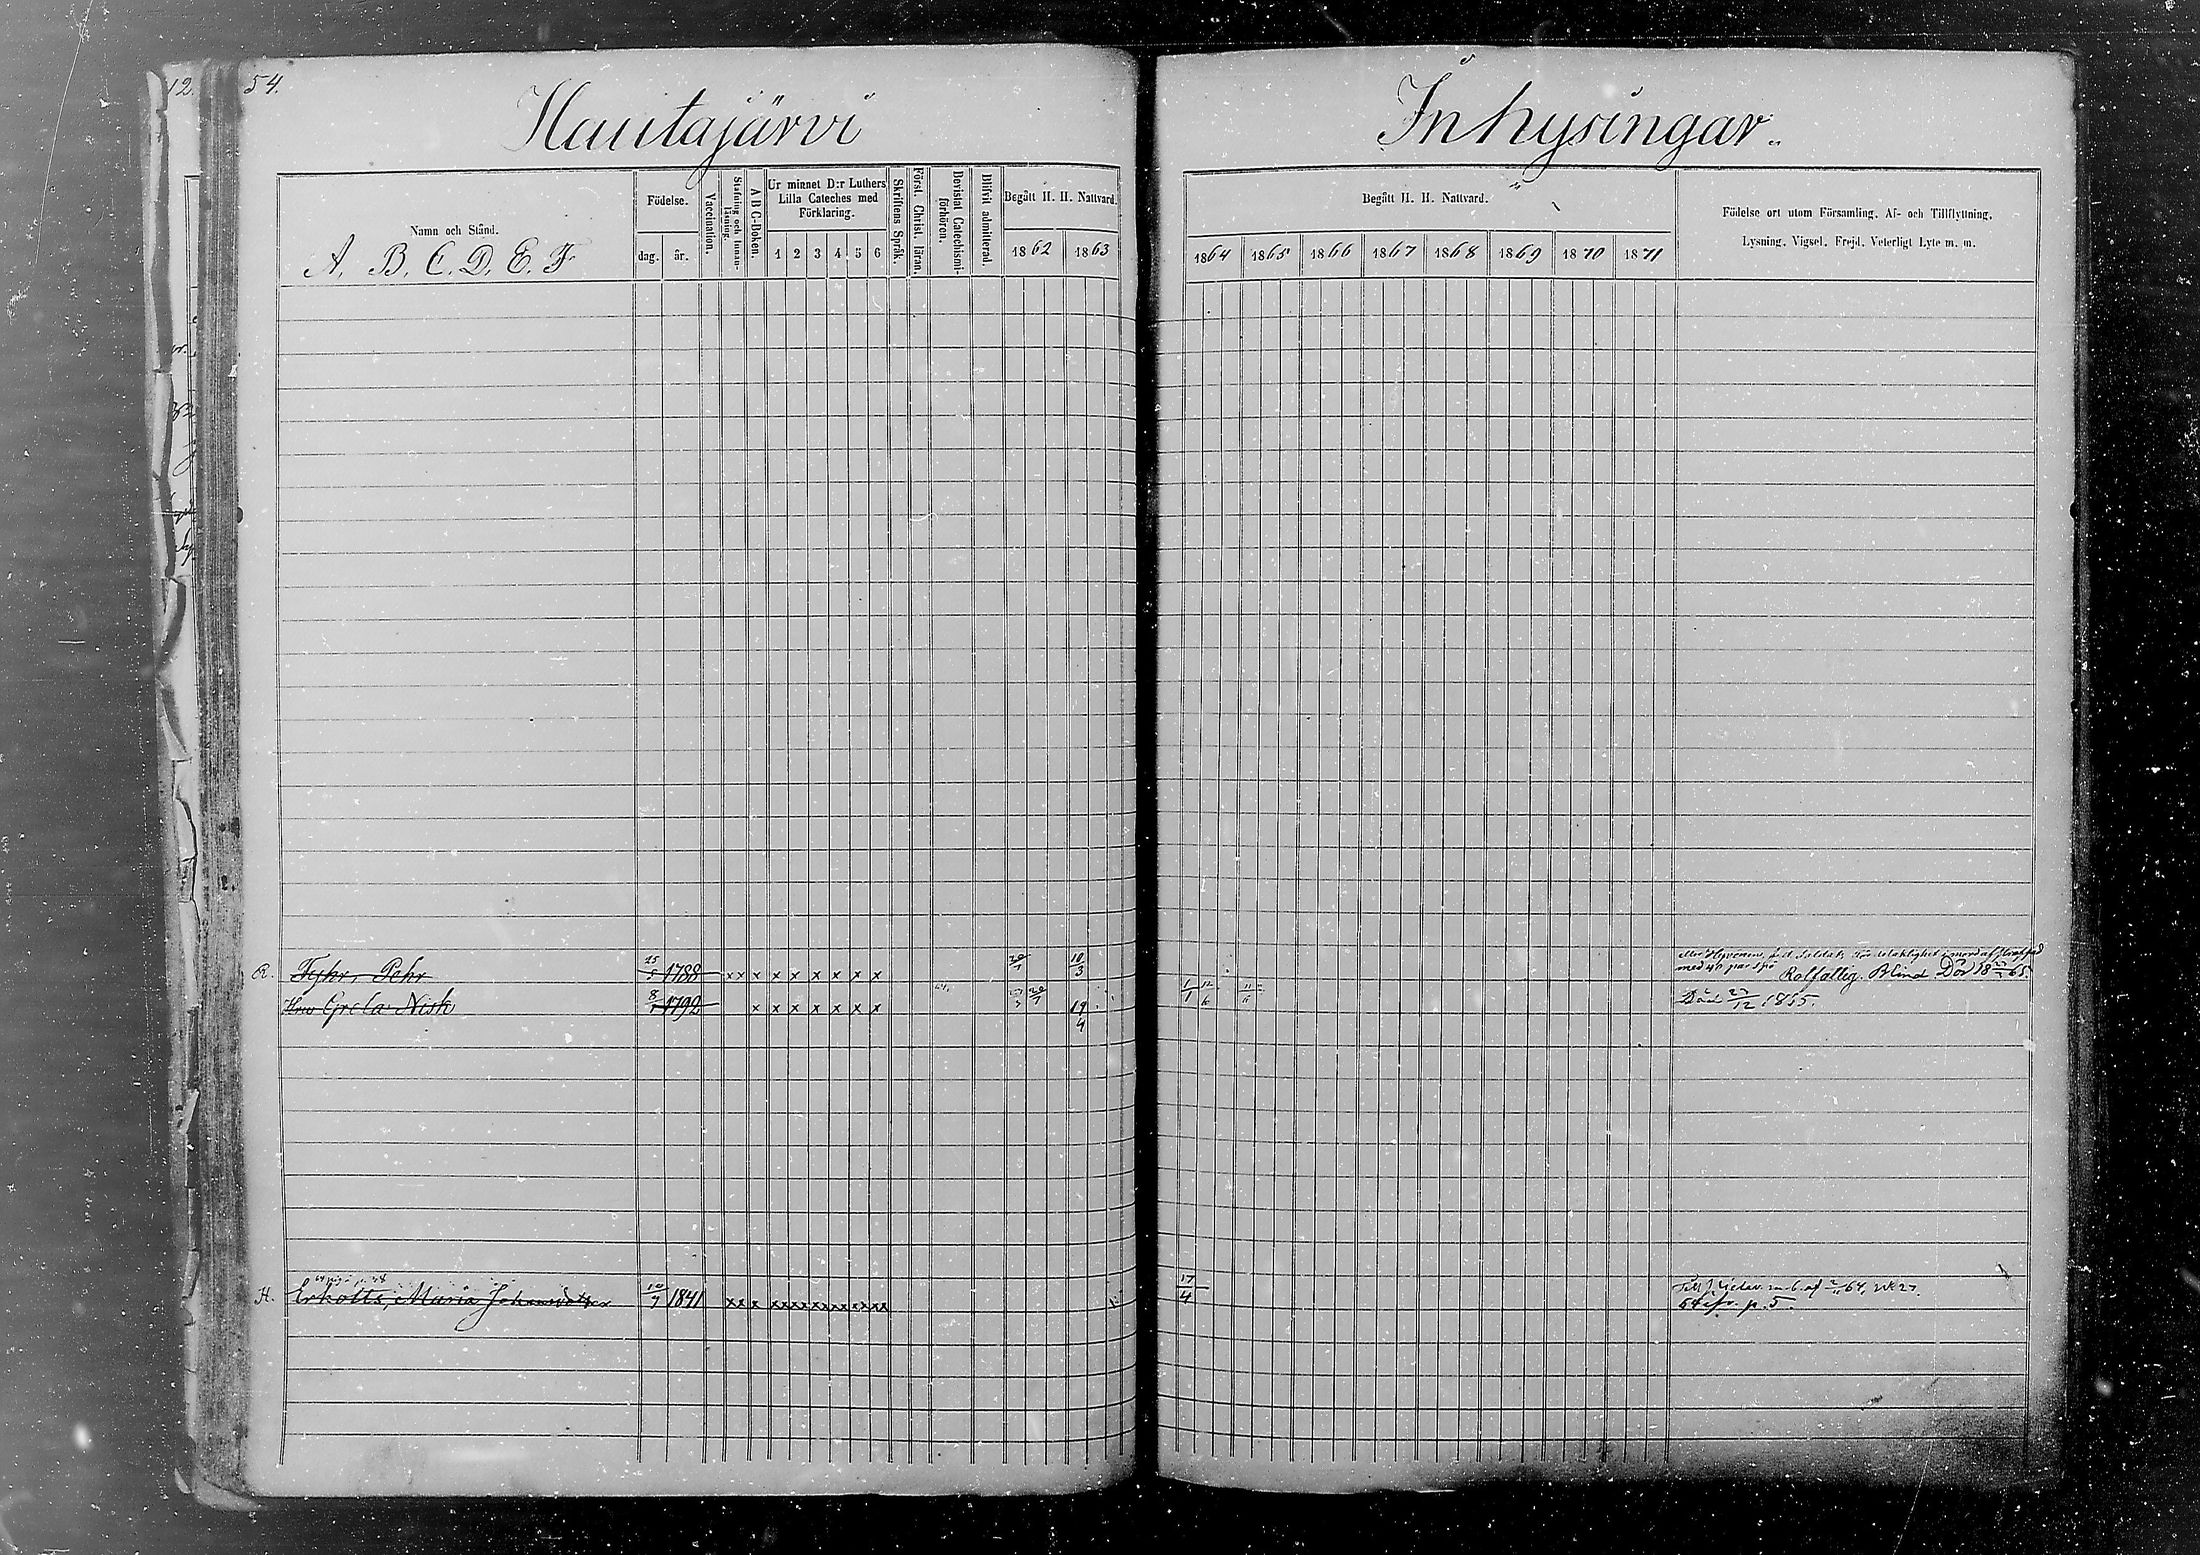 12.
54.
Hautajärvi
Inhysingar.
Namn och Stånd.
A. B. C. D. E. F
Födelse.
dag. år.
Vaccination.
Stafning och Innanläsning.
A B C-Boken.
Ur minnet D:r Luthers
Lilla Cateches med
Förklaring.
1 2 3 4 5 6
Skriftens Språk.
Först. Christ. läran.
Bevistat Catechismiförhören.
Blifvit admitterad.
Begått H. H. Nattvard.
1862 1863
Begått H. H. Nattvard.
1864 1865 1866 1867 1868 1869 1870 1871
Födelse ort utom Församling. Af- och Tillflyttning.
Lysning. Vigsel. Frejd. Veterligt Lyte m. m.
R. Fyhr, Pehr 15/5 1788 x x x x x x x x x 10/3
med 40 par spö Rolfallig. Blind Död 18 65.
Hru Greta Nisk 8/1 1792 x x x x x x x 19/4 1/1 12/6
Död 27/12 1865.
H. Erkotts, Maria Johansdotter 10/7 1841 x x x x x x x x x 17/4
64 p. 5.